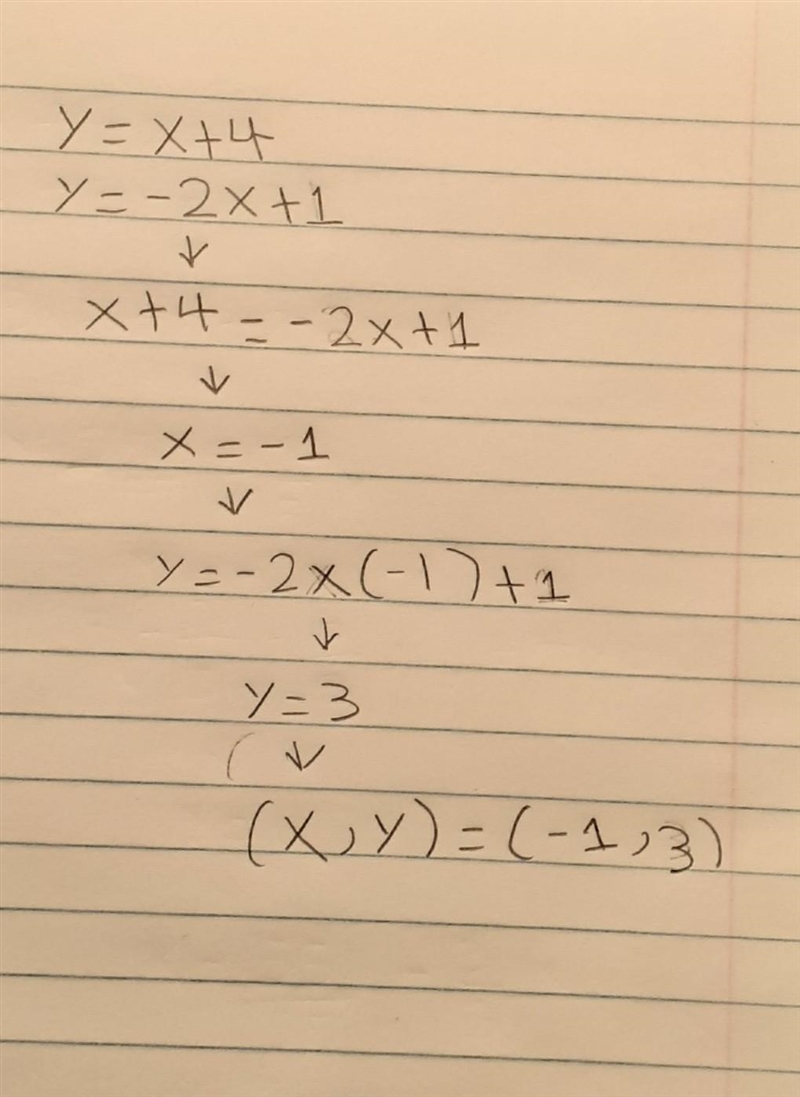 y=x+4
y=-2x+1
↓
x+4=-2x+1
↓
x=-1
↓
y=-2x(-1)+1
↓
y=3
( ↓
(x,y)=(-1,3)